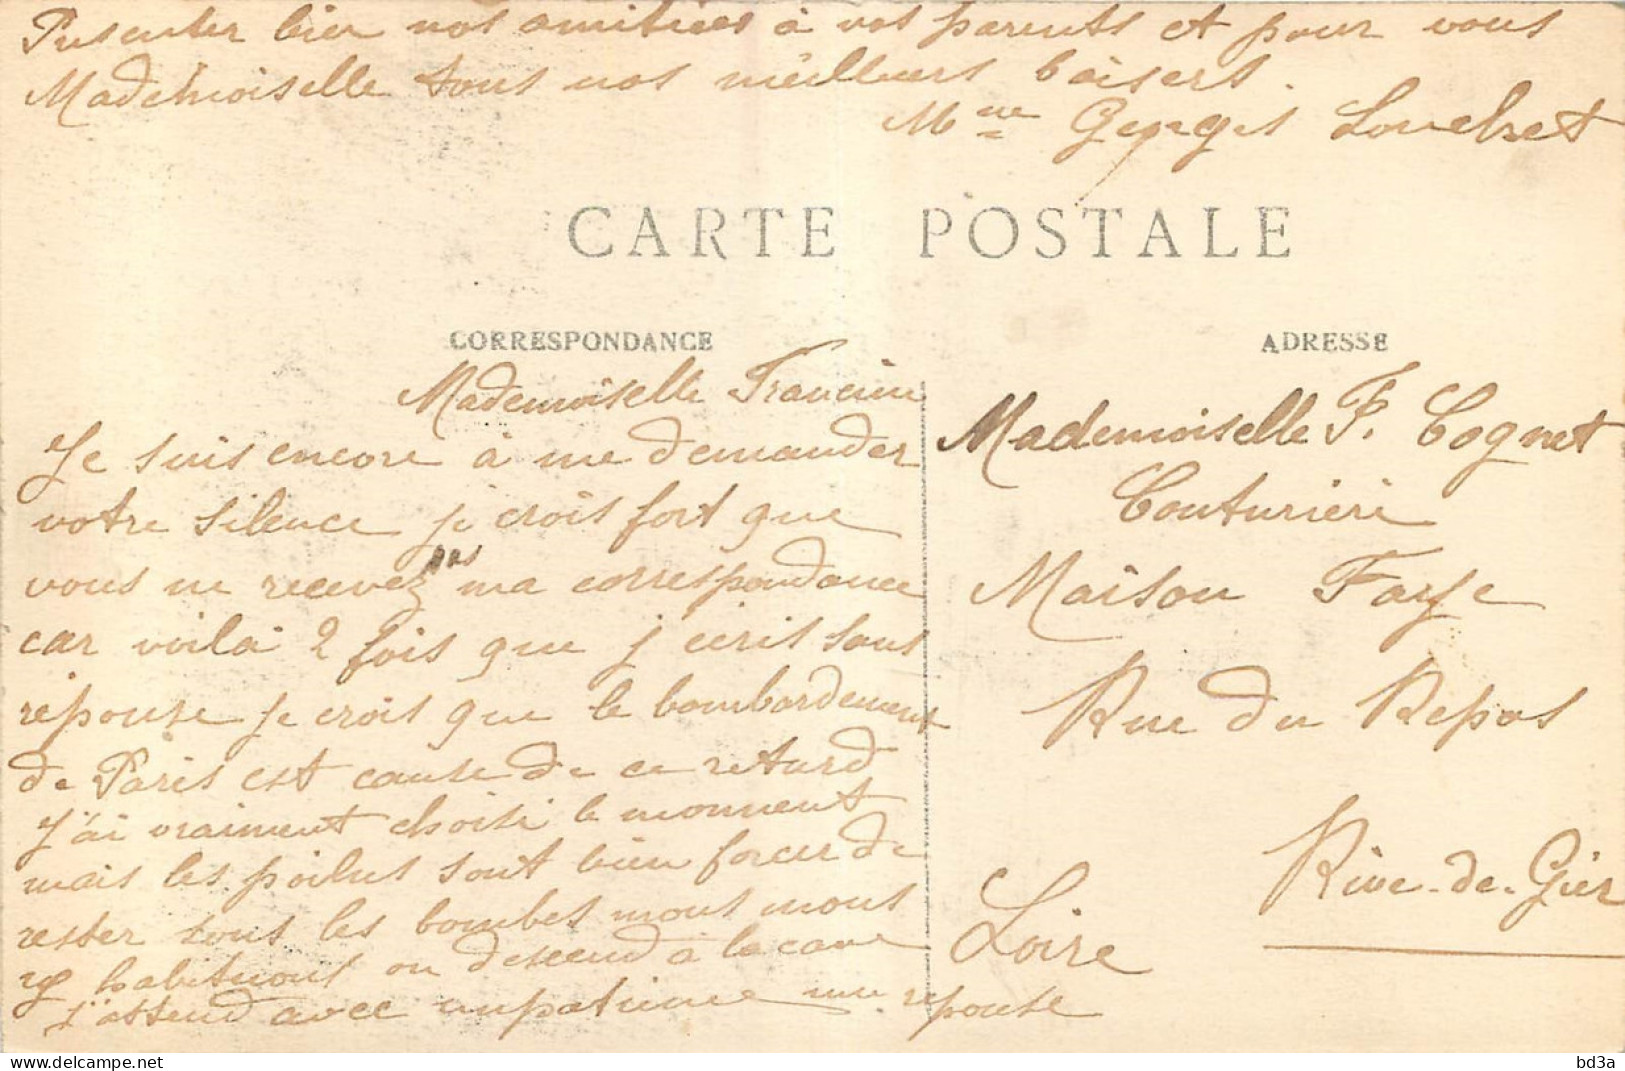 Presenter bien nos amitiées à vos parents et pour vous
Mademoiselle tous nos meilleurs baisers.
Mme Georges
CARTE POSTALE
CORRESPONDANCE
ADRESSE
Mademoiselle Francine
Je suis encore à me demander
votre silence je crois fort que
vous ne recevez pas ma correspondance
car voilà 2 fois que j ecris sans
réponse je crois que le bombardement
de Paris est cause de ce retard
J'ai vraiment choisi le moment
mais les poilus sont bien forcer de
rester sous les bombes nous nous
y habituons on descend à la cave
J'attend avec impatience une reponse
Mademoiselle F. Cognet
Couturière
Maison Faye
Rue du Repos
Rive-de-Gier
Loire
bd3a